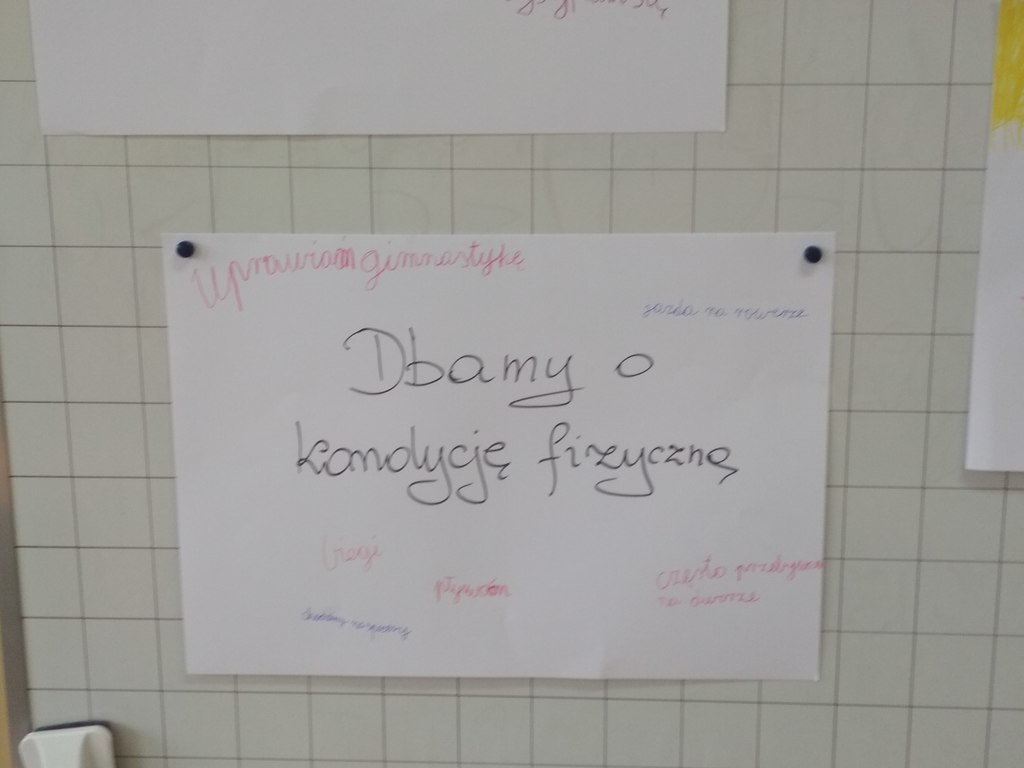 Uprawiam gimnastykę
jazda na rowerze
Dbamy o
kondycję fizyczną
biegi
pływam
często przebywam
na dworze
chodzimy na spacery